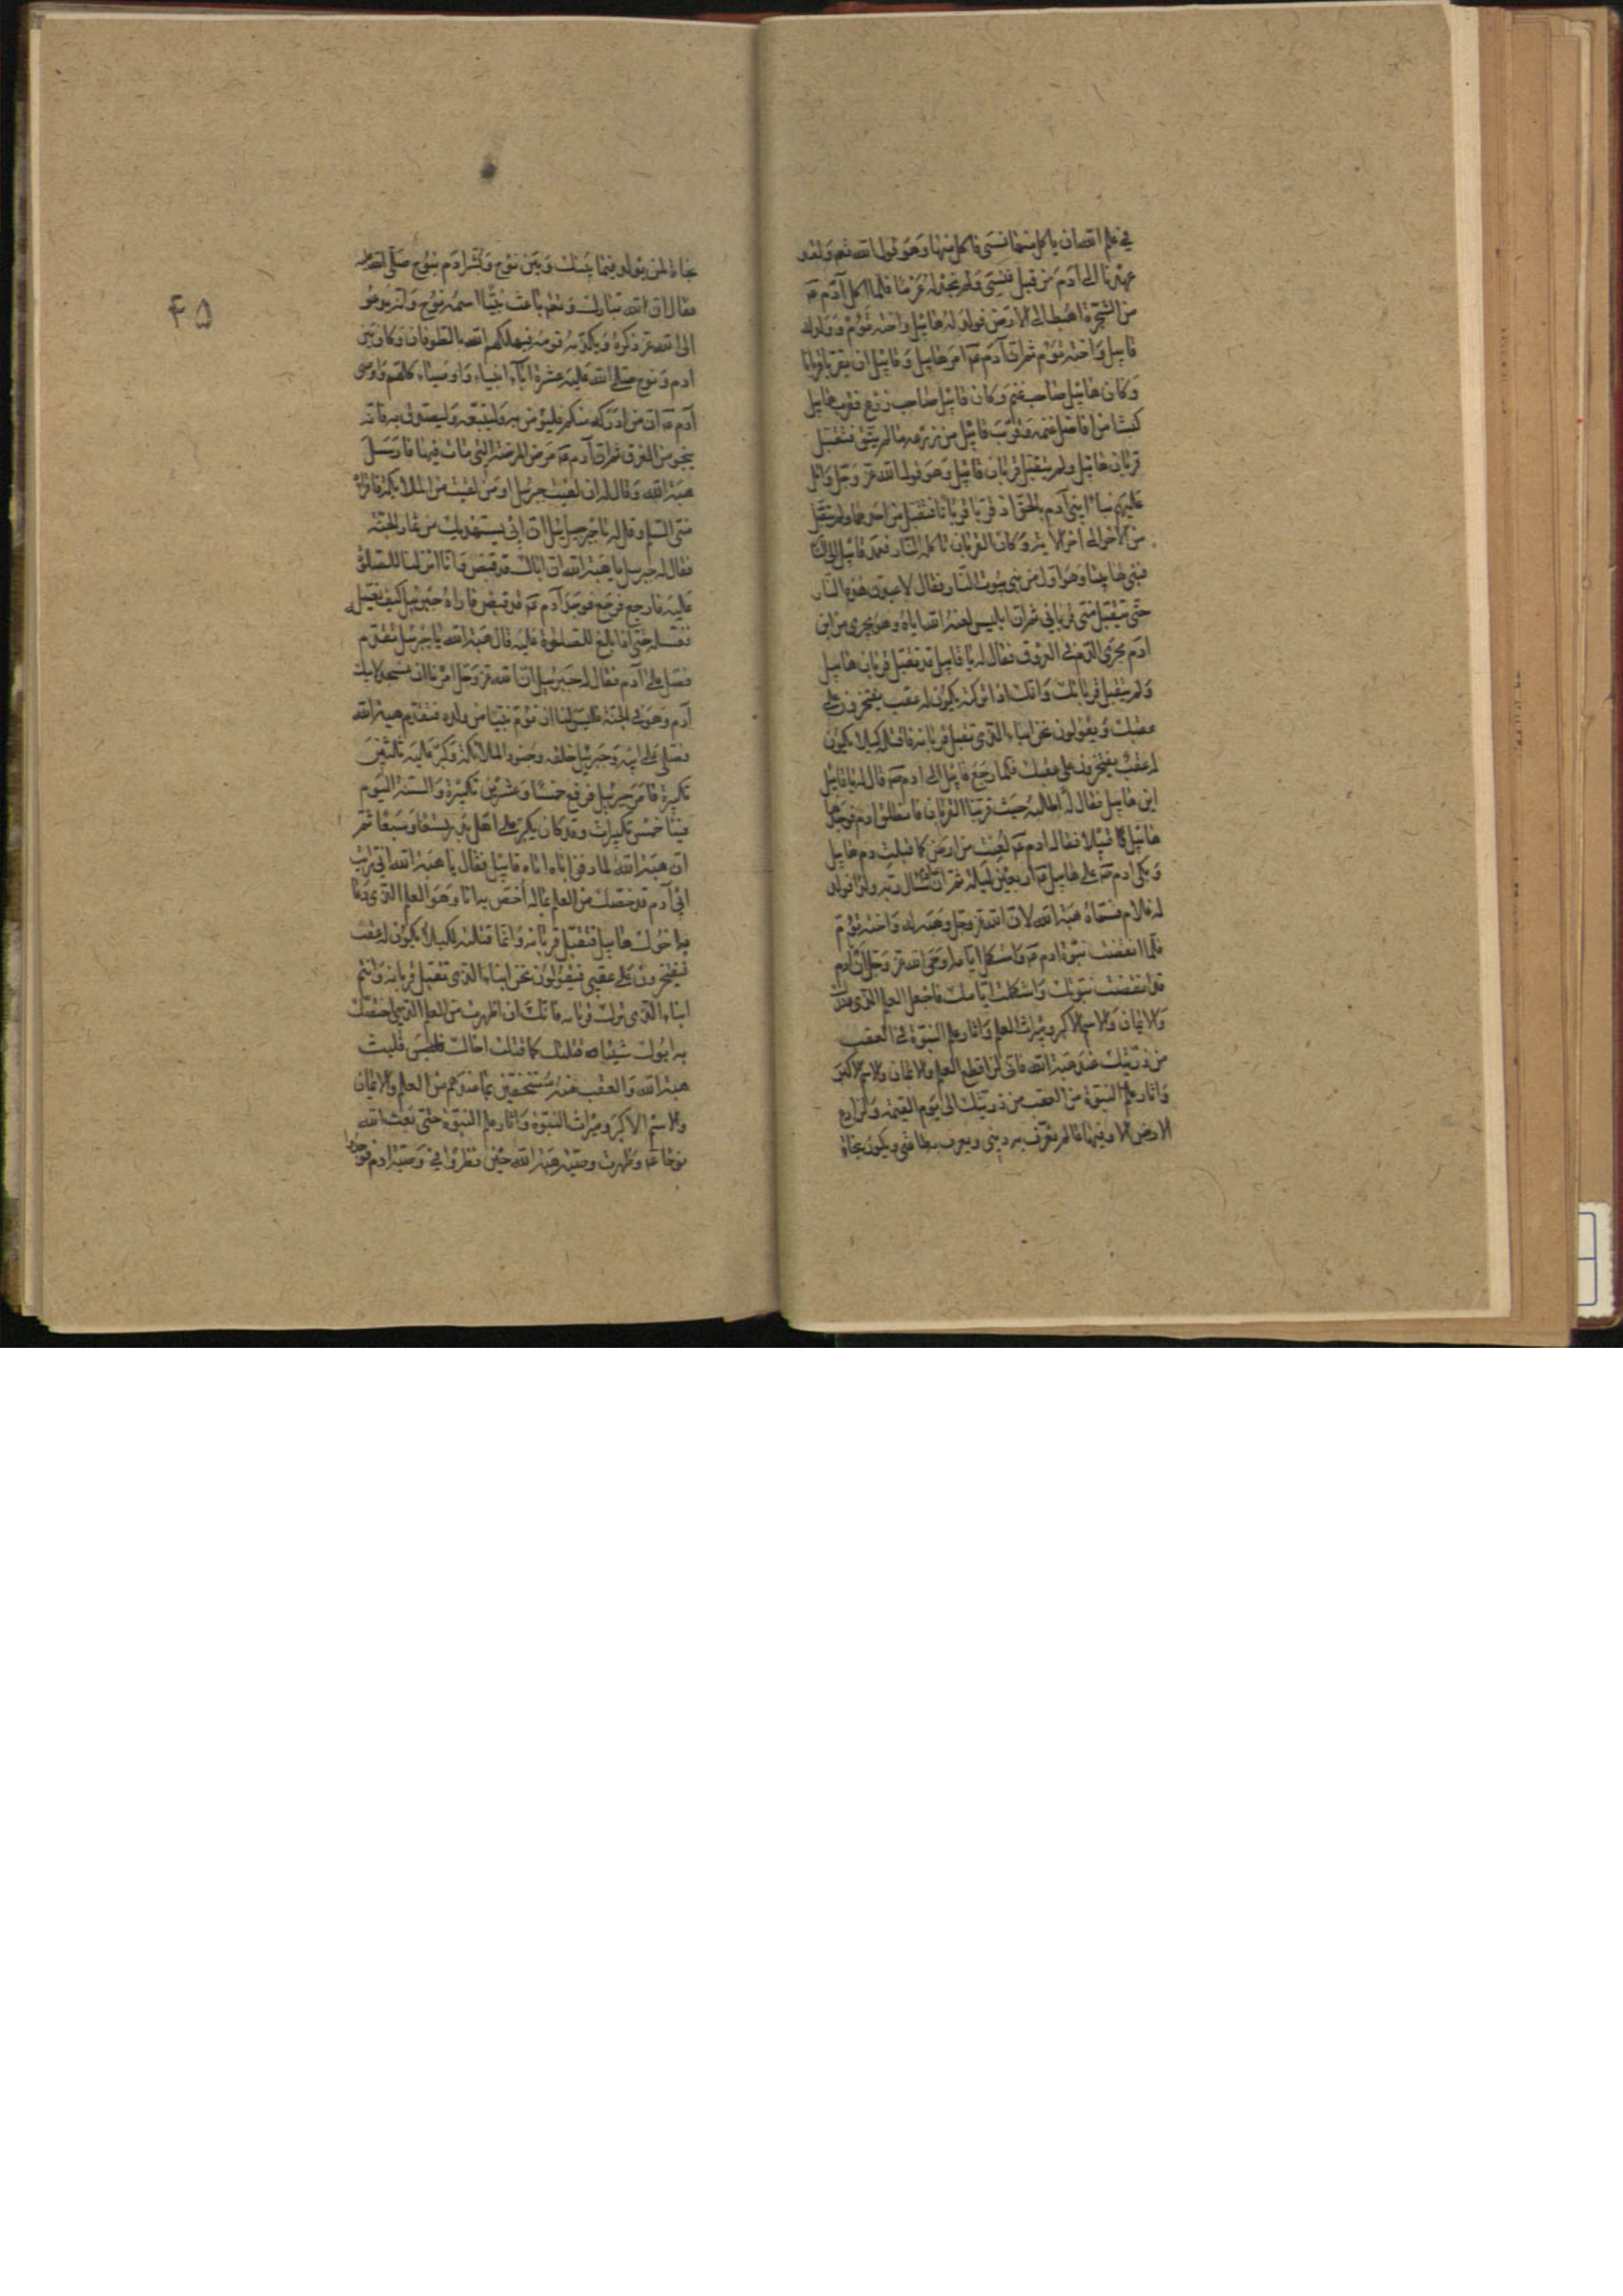 في علم الله ان ياكل منها فنسى فاكل منها وهو قول الله تعه ولقد
عهدنا الى آدم من قبل فنسى ولم نجد له عزما فلما اكل آدم عه
من الشجرة اهبط الى الارض فولد له هابيل واخته توءم وولد له
قابيل واخته توءم ثم ان آدم عه امر هابيل وقابيل ان يقربا قربانا
وكان هابيل صاحب غنم وكان قابيل صاحب زرع فقرب هابيل
كبشا من افاضل غنمه وقرب قابيل من زرعه ما لم ينق فتقبل
قربان هابيل ولم يتقبل قربان قابيل وهو قول الله عز وجل واتل
عليهم نبأ ابنى آدم بالحق اذ قربا قربانا فتقبل من احدهما ولم يتقبل
من الآخر الى آخر الاية وكان القربان تاكله النار فعمد قابيل الى النار
فبنى لها بيتا وهو اول من بنى بيوت النار فقال لاعبدن هذه النار
حتى يتقبل منى قربانى ثم ان ابليس لعنه الله اتاه وهو يجرى من ابن
ادم مجرى الدم في العروق فقال له يا قابيل قد تقبل قربان هابيل
ولم يتقبل قربانك وانك ان تركته يكون له عقب يفتخرون على
عقبك ويقولون نحن ابناء الذى تقبل قربانه فاقتله كيلا يكون
له عقب يفتخرون على عقبك فلما رجع قابيل الى ادم عه قال له يا قابيل
اين هابيل فقال له اطلبه حيث قربنا القربان فانطلق ادم فوجد
هابيل قتيلا فقال ادم عه لعنت من ارض كما قبلت دم هابيل
وبكى ادم عه على هابيل اربعين ليلة ثم ان سال ربه ولدا فولد
له غلام فسماه هبة الله لان الله عز وجل وهبه له واخته توءم
فلما انقضت نبوة ادم عه واستكمل ايامه اوحى الله عز وجل ان ادم
قد انقضت نبوتك واستكملت ايامك فاجعل العلم الذى عندك
والايمان والاسم الاكبر وميراث العلم واثار علم النبوة في العقب
من ذريتك عند هبة الله فانى لن اقطع العلم والايمان والاسم الاكبر
واثار علم النبوة من العقب من ذريتك الى يوم القيمة ولن ادع
الارض الا وفيها عالم يعرف به دينى ويعرف به طاعتى ويكون نجاة
٤۵
نجاة لمن يولد فيما بينك وبين نوح وبشر ادم بنوح صلى الله عليه
فقال ان الله تبارك وتعه باعث نبيا اسمه نوح وانه يدعو
الى الله عز ذكره ويكذبه قومه فيهلكهم الله بالطوفان وكان بين
ادم ونوح صلى الله عليه عشرة آباء انبياء واوصياء كلهم واوصى
آدم عه ان من ادركه منكم فليؤمن به وليتبعه وليصدق به فانه
ينجو من الغرق ثم ان آدم عه مرض المرضة التى مات فيها فارسل
هبة الله وقال له ان لقيت جبرئيل او من لقيت من الملائكة فاقراه
منى السلم وقل له يا جبرئيل ان ابى يستهديك من ثمار الجنة
فقال له جبرئيل يا هبة الله ان اباك قد قبض وانا نزلنا للصلوة
عليه فارجع فرجع فوجد آدم عه قد قبض فاراه جبرئيل كيف يغسله
فغسله حتى اذا بلغ للصلوة عليه قال هبة الله يا جبرئيل تقدم
فصل على آدم فقال له جبرئيل ان الله عز وجل امرنا ان نسجد لابيك
آدم وهو في الجنة فليس لنا ان نؤم شيئا من ولده فتقدم هبة الله
فصلى على ابيه وجبرئيل خلفه وجنود الملائكة وكبر عليه ثلثين
تكبيرة فامر جبرئيل فرفع خمسا وعشرين تكبيرة والسنة اليوم
فينا خمس تكبيرات وقد كان يكبر على اهل بدر تسعا وسبعا ثم
ان هبة الله لما دفن اباه اتاه قابيل فقال يا هبة الله انى رايت
ابى آدم قد خصك من العلم بما لم اخص به انا وهو العلم الذى دعا
به اخوك هابيل فتقبل قربانه وانما قتلته لكيلا يكون له عقب
فيفتخرون على عقبى فيقولون نحن ابناء الذى تقبل قربانه وانتم
ابناء الذى ترك قربانه فانك ان اظهرت من العلم الذى اختصك
به ابوك شيئا قتلتك كما قتلت اخاك هابيل فلبث
هبة الله والعقب منه مستخفين بما عندهم من العلم والايمان
والاسم الاكبر وميراث النبوة واثار علم النبوة حتى بعث الله
نوحا عه وظهرت وصية هبة الله حين نظروا في وصية ادم فوجدوا